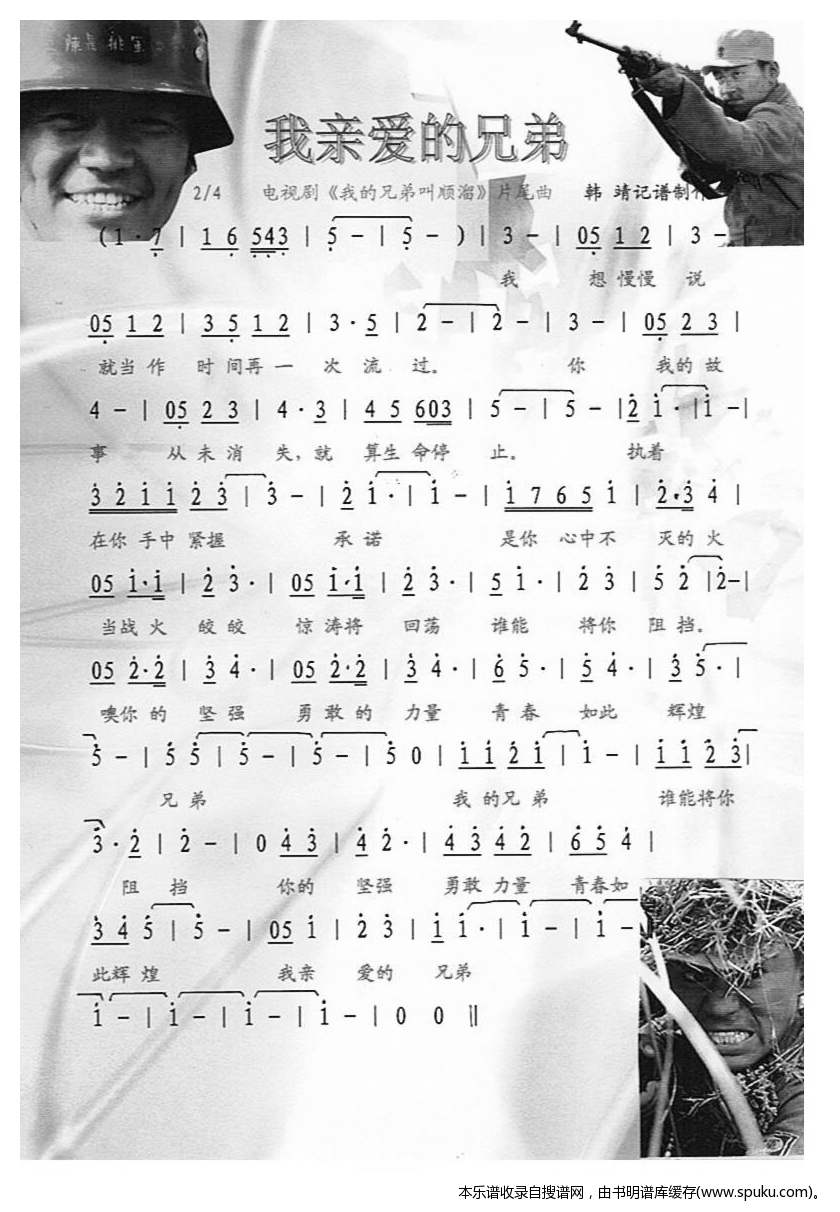 我亲爱的兄弟
2/4 电视剧《我的兄弟叫顺溜》片尾曲 韩 靖记谱制作
(1·7 | 1 6 543 | 5 - | 5 - ) | 3 - | 05 1 2 | 3 - |
我 想 慢慢 说
05 1 2 | 3 5 1 2 | 3·5 | 2 - | 2 - | 3 - | 05 2 3 |
就当 作 时 间再 一 次 流 过。 你 我的 故
4 - | 05 2 3 | 4·3 | 4 5 603 | 5 - | 5 - | 2 1· | 1 - |
事 从 未 消 失，就 算生 命停 止。 执着
3 2 1 1 2 3 | 3 - | 2 1· | 1 - | 1 7 6 5 1 | 2·3 4 |
在你 手中 紧握 承 诺 是你 心中 不 灭的 火
05 1·1 | 2 3· | 05 1·1 | 2 3· | 5 1· | 2 3 | 5 2 | 2- |
当战 火 皎皎 惊 涛将 回荡 谁能 将你 阻 挡。
05 2·2 | 3 4· | 05 2·2 | 3 4· | 6 5· | 5 4· | 3 5· |
噢你 的 坚 强 勇 敢 的 力量 青 春 如此 辉煌
5 - | 5 5 | 5 - | 5 - | 5 0 | 1 1 2 1 | 1 - | 1 1 2 3 |
兄 弟 我 的兄 弟 谁能将你
3·2 | 2 - | 0 4 3 | 4 2· | 4 3 4 2 | 6 5 4 |
阻 挡 你的 坚强 勇敢 力量 青春如
3 4 5 | 5 - | 05 1 | 2 3 | 1 1· | 1 - | 1 -
此辉 煌 我亲 爱的 兄弟
1 - | 1 - | 1 - | 1 - | 0 0 ||
本乐谱收录自搜谱网，由书明谱库缓存(www.spuku.com)。